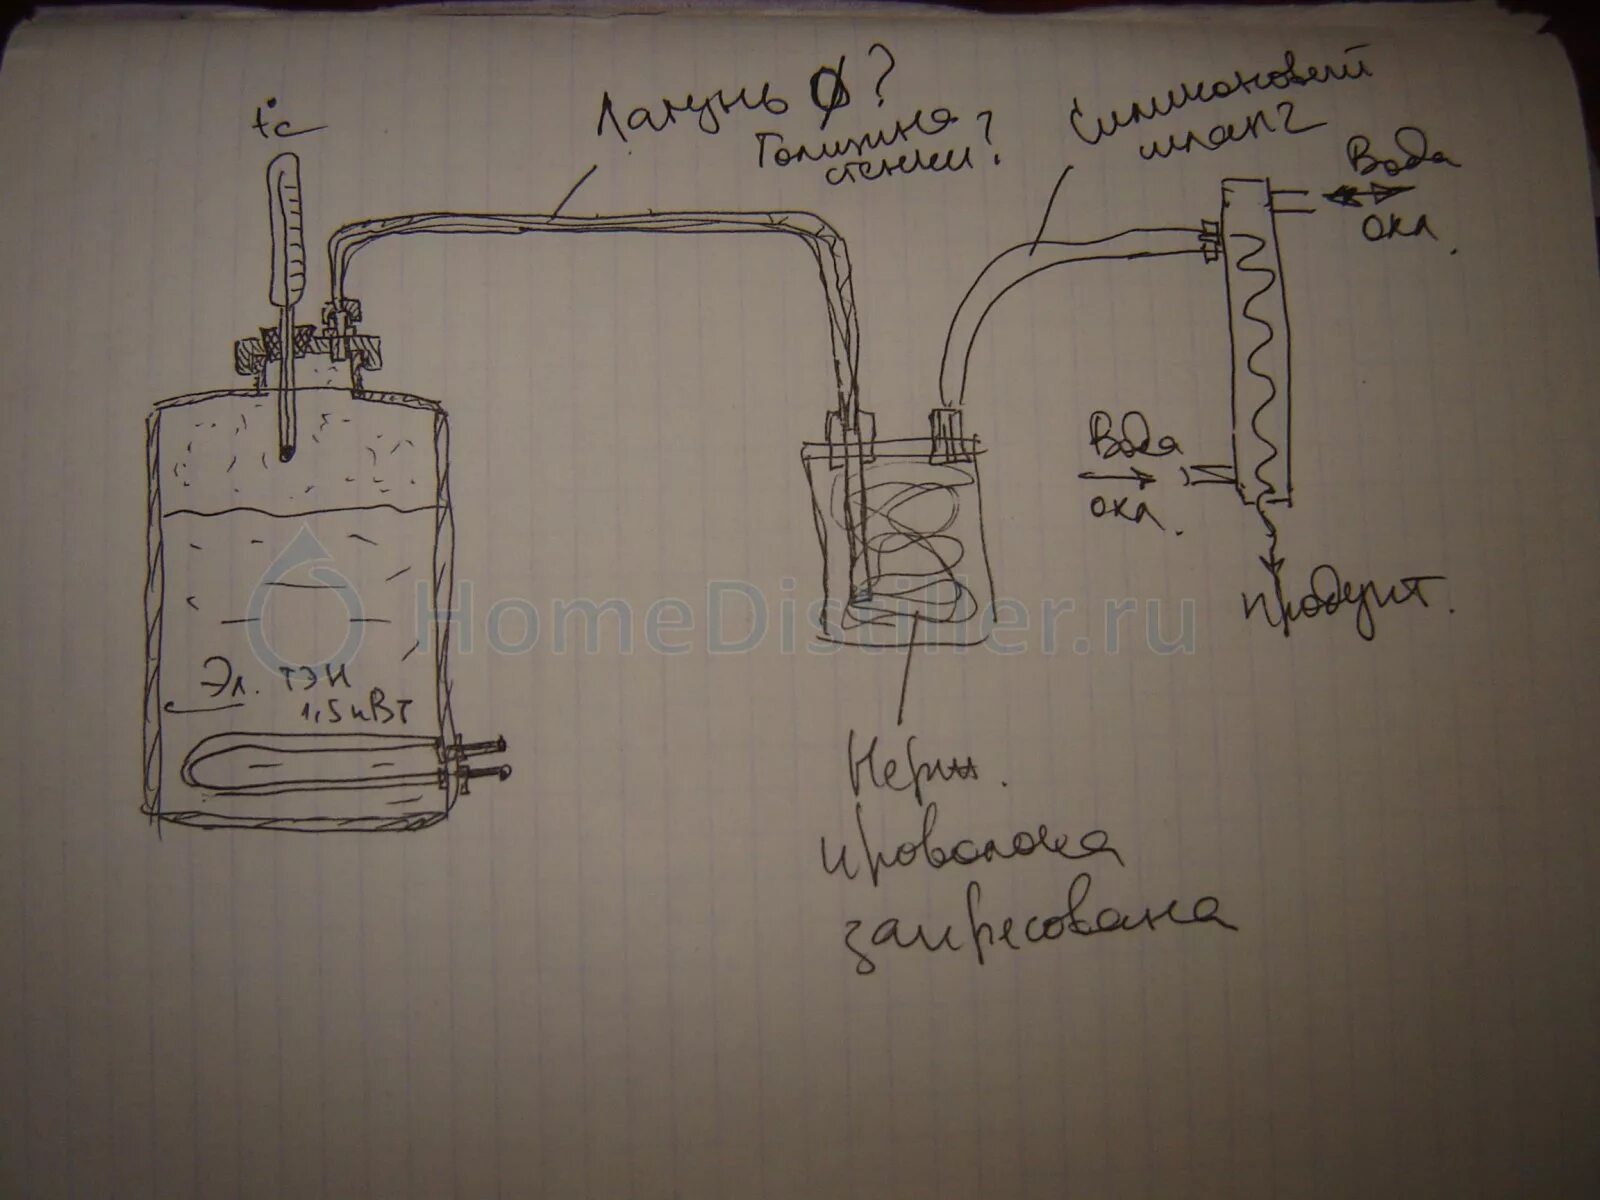 t°c
Латунь Ø?
Толщина
стенки?
Силиконовый
шланг
Вода
охл.
Вода
охл.
продукт.
Эл. ТЭН
1,5 кВт
HomeDistiller.ru
Нерж.
проволока
запресована